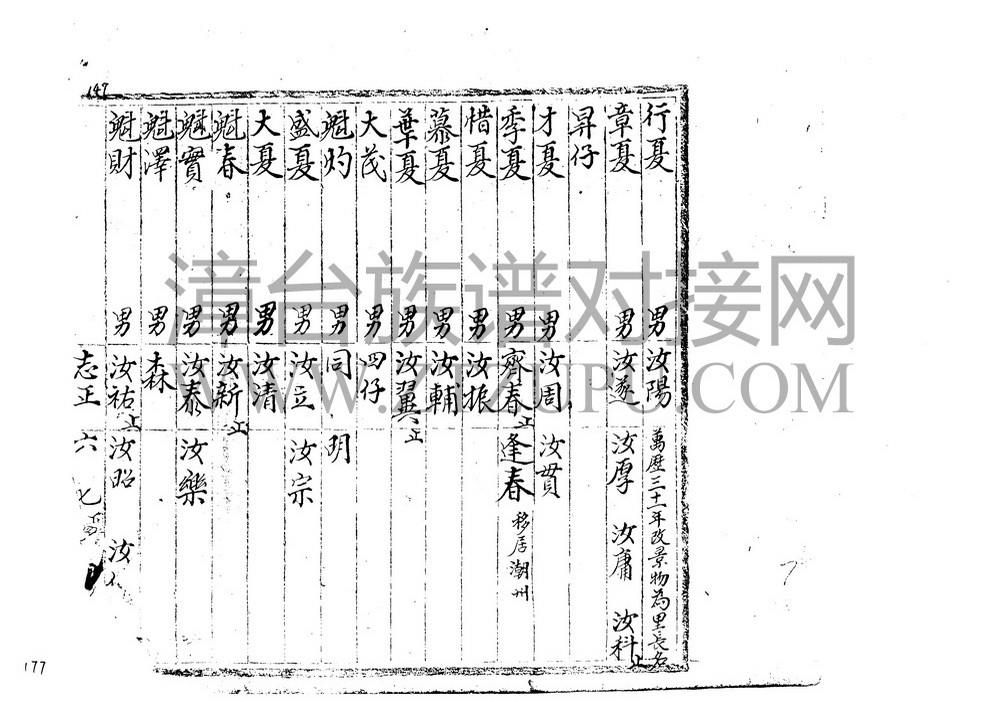 147
行夏 男 汝陽 萬歷三十一年改景物為里長名
章夏 男 汝遂 汝厚 汝庸 汝科 止
昇仔
才夏 男 汝周 汝貫
季夏 男 齊春 止 逢春 移居潮州
惜夏 男 汝振
慕夏 男 汝輔
華夏 男 汝翼 止
大茂 男 四仔
魁灼 男 同 明
盛夏 男 汝立 汝宗
大夏 男 汝清
魁春 男 汝新 止
魁實 男 汝泰 汝樂
魁澤 男 森
魁財 男 汝祐 止 汝昭 汝
志正 六 七
177
漳台族谱对接网
WWW.ZTZUPU.COM